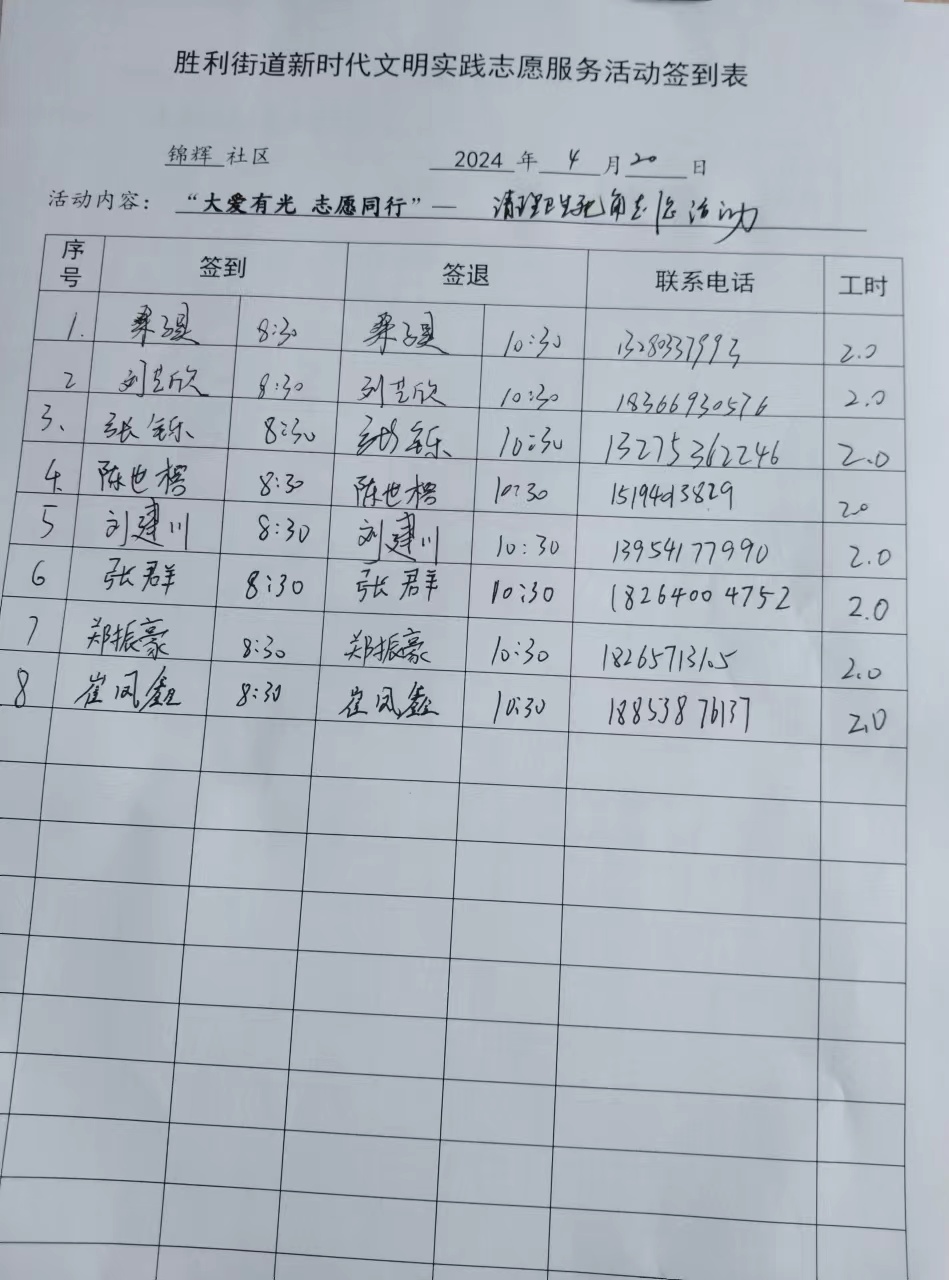 胜利街道新时代文明实践志愿服务活动签到表
锦辉 社区 2024 年 4 月 20 日
活动内容： “大爱有光 志愿同行”— 清理卫生死角志愿活动
序号 签到 签退 联系电话 工时
1. 8:30 10:30 13280337993 2.0
2 刘芝欣 8:30 刘芝欣 10:30 18366930576 2.0
3、 张乐 8:30 张乐 10:30 13275362246 2.0
4. 陈也榕 8:30 陈也榕 10:30 15194013829 2.0
5 刘建川 8:30 刘建川 10:30 13954177990 2.0
6 张群 8:30 张群 10:30 18264004752 2.0
7 郑振豪 8:30 郑振豪 10:30 18265713105 2.0
8 崔凤鑫 8:30 崔凤鑫 10:30 18853876137 2.0